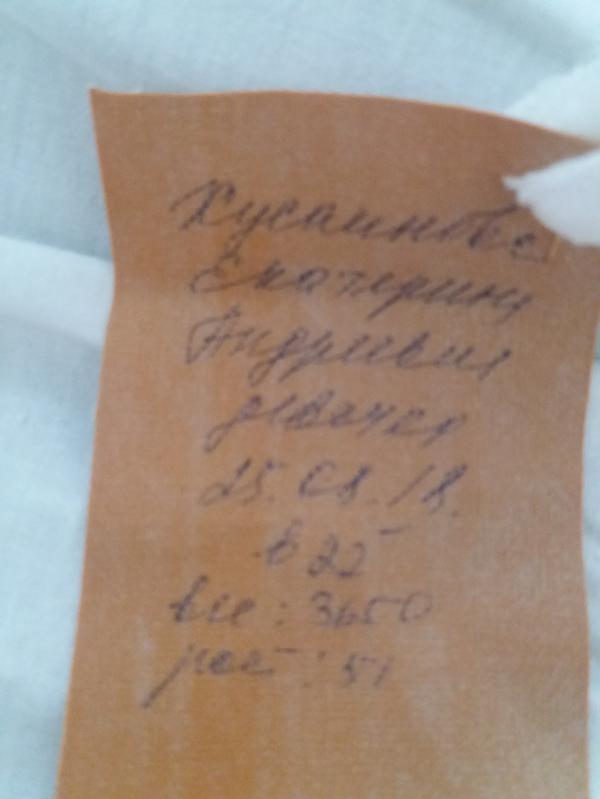 Хусаинова
Екатерина
Андреевна
девочка
25.08.18.
в 22
вес: 3650
рост: 51